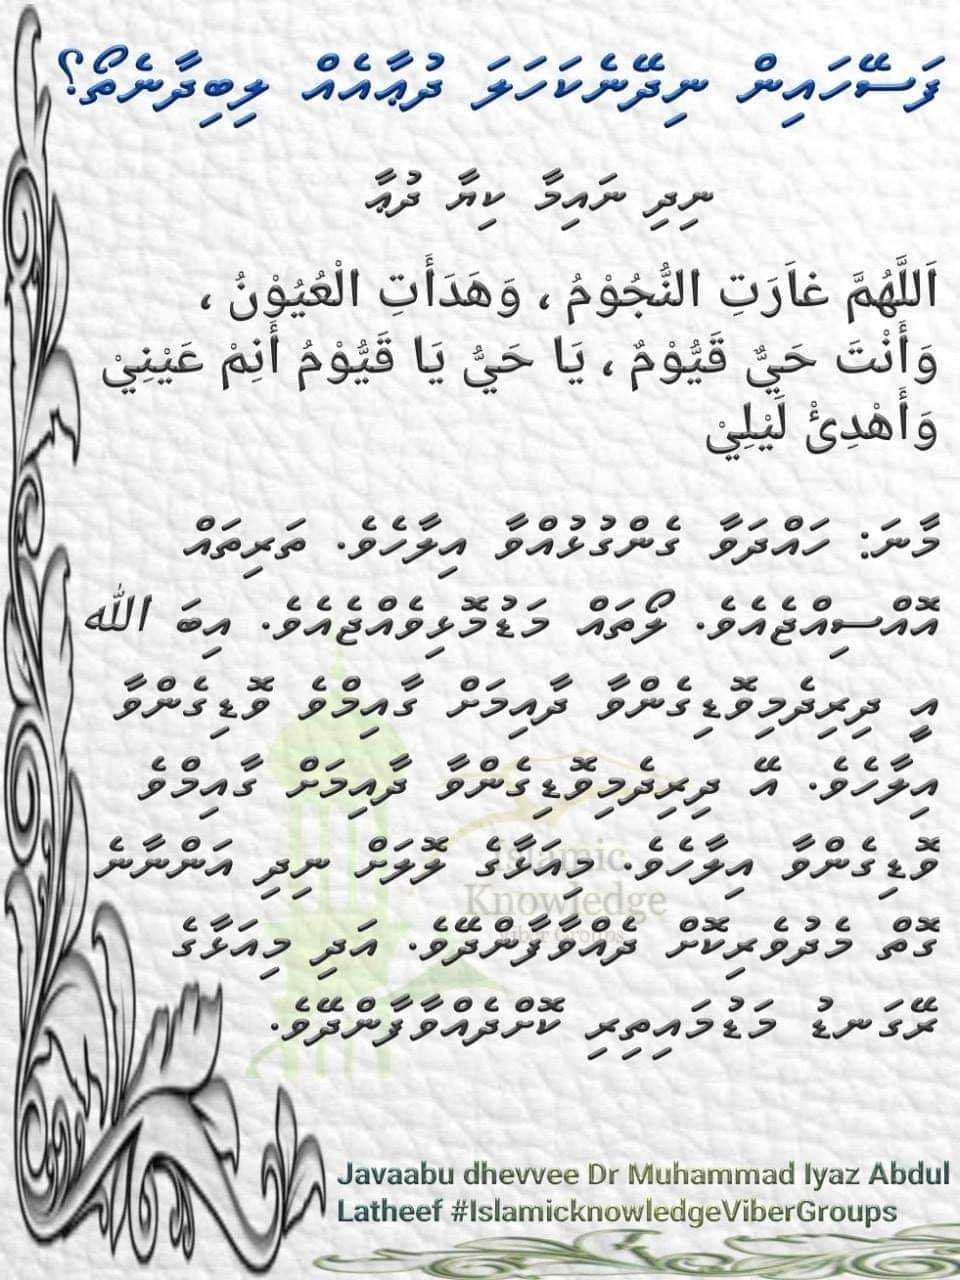 ފަސޭހައިން ނިދޭނެކަހަލަ ދުޢާއެއް ލިބިދާނެތޯ؟
ނިދި ނައިމާ ކިޔާ ދުޢާ
اَللَّهُمَّ غاَرَتِ النُّجُوْمُ ، وَهَدَأَتِ الْعُيُوْنُ ،
وَأَنْتَ حَيٌّ قَيُّوْمٌ ، يَا حَيُّ يَا قَيُّوْمُ أَنِمْ عَيْنِيْ
وَأَهْدِئْ لَيْلِيْ
މާނަ: ހައްދަވާ ގެންގުޅުއްވާ އިލާހެވެ. ތަރިތައް
އޮއްސިއްޖެއެވެ. ލޯތައް މަޑުމޮޅިވެއްޖެއެވެ. އިބަ الله
އީ ދިރިދެމިވޮޑިގެންވާ ދާއިމަށް ގާއިމްވެ ވޮޑިގެންވާ
އިލާހެވެ. އޭ ދިރިދެމިވޮޑިގެންވާ ދާއިމަށް ގާއިމްވެ
ވޮޑިގެންވާ އިލާހެވެ. މިއަޅާގެ ލޮލަށް ނިދި އަންނާނެ
ގޮތް މެދުވެރިކޮށް ދެއްވަވާފާންދޭވެ. އަދި މިއަޅާގެ
ރޭގަނޑު މަޑުމައިތިރި ކޮށްދެއްވާފާންދޭވެ.
Islamic
Knowledge
Viber Groups
Javaabu dhevvee Dr Muhammad Iyaz Abdul
Latheef #IslamicknowledgeViberGroups